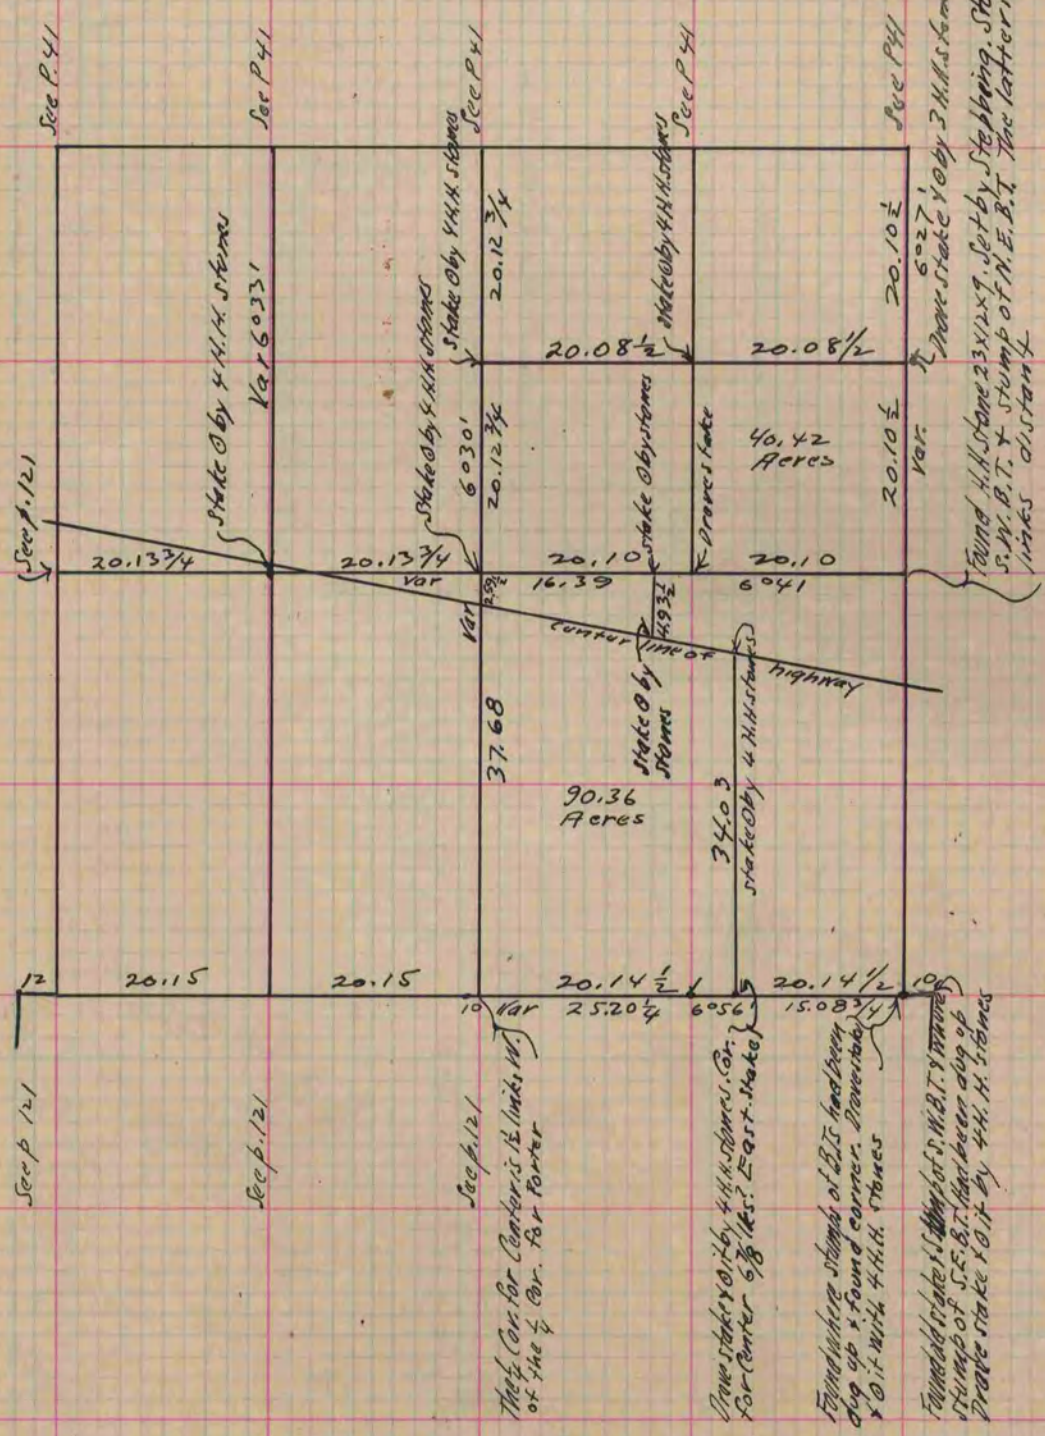 See P.41
See P41
See P41
See P41
See P41
Stake O by 4 H.H. stones
Var 6°33'
Stake O by 4 H.H. stones
6°30'
Stake O by 4 H.H. stones
20.12 3/4
20.12 3/4
20.08 1/2
stake O by 4 H.H. stones
20.08 1/2
20.10 1/2
6°27'
Drove stake & O by 3 H.H. stones
Found H.H. stone 23x12x9. Set by Stebbing.
S.W.B.T. & stump of N.E.B.T. The latter
links distant
See p.121
20.13 3/4
20.13 3/4
var
20.10
16.39
stake O by stones
Drove stake
40.42
Acres
20.10
6°41
20.10 1/2
Var.
Var
4.93 1/2
center line of highway
Stake O by
stones
37.68
90.36
Acres
34.03
stake O by 4 H.H. stones
12
20.15
20.15
20.14 1/2
20.14 1/2
10
10
Var
25.20 1/4
6°56'
15.08 3/4
See p 121
See p.121
See p.121
The 1/4 Cor. for Center is 1 1/2 links W.
of the 1/4 Cor. for Porter
Drove stake & O it by 4 H.H. stones. Cor.
for Center 6 7/8 lks? East. stake
Found where stumps of BTs had been
dug up & found corner. Drove stake
& O it with 4 H.H. stones
Found old stake & stump of S.W.B.T. & where
stump of S.E.B.T. Had been dug up
Drove stake & O it by 4 H. H. stones